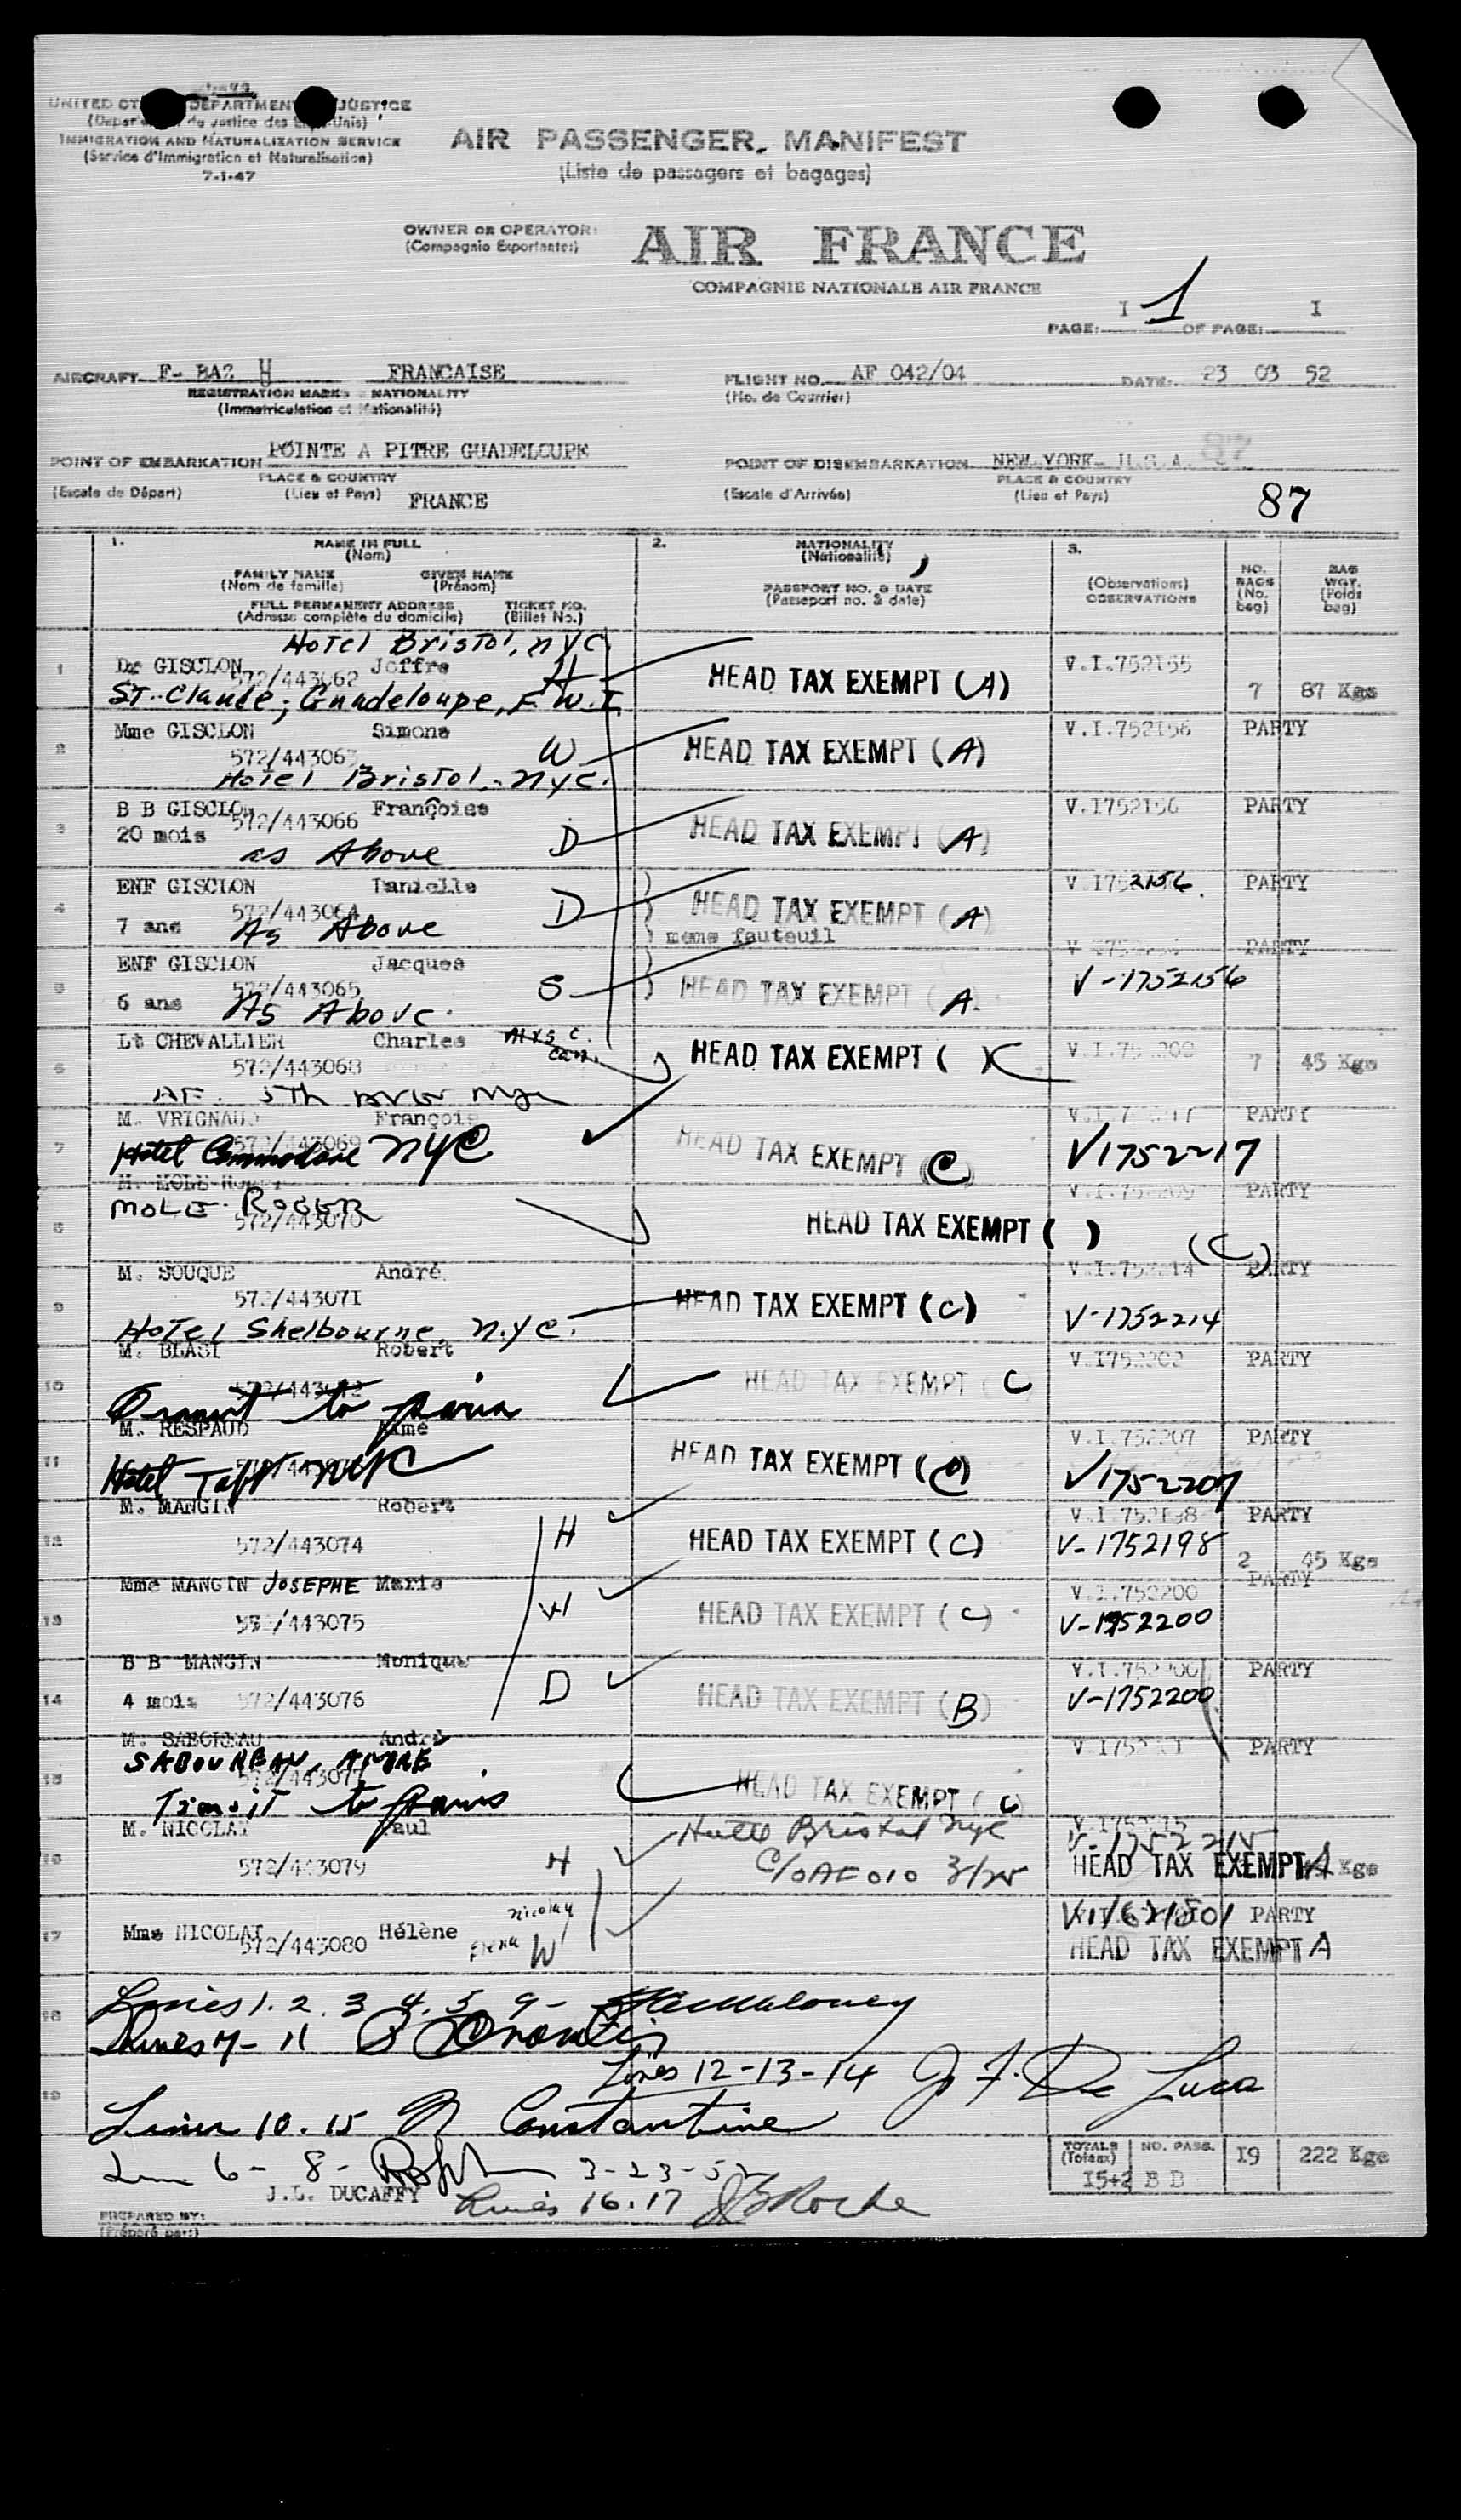 UNITED STATES DEPARTMENT OF JUSTICE
(Departement de Justice des Etats-Unis)
IMMIGRATION AND NATURALIZATION SERVICE
(Service d'Immigration et Naturalisation)
7-1-47
AIR PASSENGER MANIFEST
(Liste de passagers et bagages)
OWNER OR OPERATOR:
(Compagnie Exportante:)
AIR FRANCE
COMPAGNIE NATIONALE AIR FRANCE
PAGE: I 1 OF PAGE: I
AIRCRAFT F- BAZ H FRANCAISE
REGISTRATION MARKS & NATIONALITY
(Immatriculation et Nationalité)
FLIGHT NO. AF 042/04
(No. de Courrier)
DATE: 23 03 52
POINT OF EMBARKATION POINTE A PITRE GUADELOUPE
PLACE & COUNTRY
(Escale de Départ) (Lieu et Pays) FRANCE
POINT OF DISEMBARKATION NEW YORK U.S.A. 87
PLACE & COUNTRY
(Escale d'Arrivée) (Lieu et Pays)
87
1. NAME IN FULL
(Nom)
FAMILY NAME GIVEN NAME
(Nom de famille) (Prénom)
FULL PERMANENT ADDRESS TICKET NO.
(Adresse complète du domicile) (Billet No.)
2. NATIONALITY
(Nationalité)
PASSPORT NO. & DATE
(Passeport no. & date)
3.
(Observations)
OBSERVATIONS
NO. BAGS (No. bag)
BAG WGT. (Poids bag)
Hotel Bristol, NYC.
1 Dr GISCLON Joffre H HEAD TAX EXEMPT (A) V.I.752155
572/443062 7 87 Kgs
St-Claude, Guadeloupe, F.W.I.
2 Mme GISCLON Simone W HEAD TAX EXEMPT (A) V.I.752156 PARTY
572/443063
Hotel Bristol, NYC.
3 B B GISCLON Françoise D HEAD TAX EXEMPT (A) V.I752156 PARTY
20 mois 572/443066
as Above
4 ENF GISCLON Danielle D HEAD TAX EXEMPT (A) V I752156. PARTY
7 ans 572/443064
As Above meme fauteuil
5 ENF GISCLON Jacques S HEAD TAX EXEMPT A. PARTY
6 ans 572/443065 V-1752156
As Above.
6 Lt CHEVALLIER Charles HEAD TAX EXEMPT ( ) C 7 45 Kgs
572/443068
7 M. VRIGNAUD François HEAD TAX EXEMPT (C) PARTY
572/443069 V1752217
Hotel Commodore NYC
8 MOLE ROGER HEAD TAX EXEMPT ( ) (C) PARTY
572/443070
9 M. SOUQUE André HEAD TAX EXEMPT (C) PARTY
572/443071 V-1752214
Hotel Shelbourne, N.Y.C.
10 M. BLASI Robert HEAD TAX EXEMPT C V.I752202 PARTY
Transit to Paris
11 M. RESPAUD Aimé HEAD TAX EXEMPT (C) V.I.752207 PARTY
V1752207
Hotel Taft NYC
12 M. MANGIN Robert H HEAD TAX EXEMPT (C) PARTY
572/443074 V-1752198 2 45 Kgs
13 Mme MANGIN JOSEPHE Marie W HEAD TAX EXEMPT (C) V.I.752200 PARTY
572/443075 V-1752200
14 B B MANGIN Monique D HEAD TAX EXEMPT (B) V.I.752200 PARTY
4 mois 572/443076 V-1752200
15 SABOUREAU, ANDRE HEAD TAX EXEMPT (C) PARTY
Transit to Paris
16 M. NICOLAI Paul H Hotel Bristol NYC V-1752215
572/443079 C/O AF 010 3/25 HEAD TAX EXEMPT A Kgs
17 Mme NICOLAI Hélène Nicolay W PARTY
572/443080 HEAD TAX EXEMPT A
18 Lines 1. 2. 3 4. 5 9-
Lines 7- 11
19 Lines 12-13-14 J F. De Luca
Lines 10. 15 N Constantine
Lines 6- 8- 3-23-52
TOTALS (Totaux) NO. PASS. 15+2 B B 19 222 Kgs
J.L. DUCAFFY Lines 16.17 Roche
PREPARED BY:
(Préparé par:)